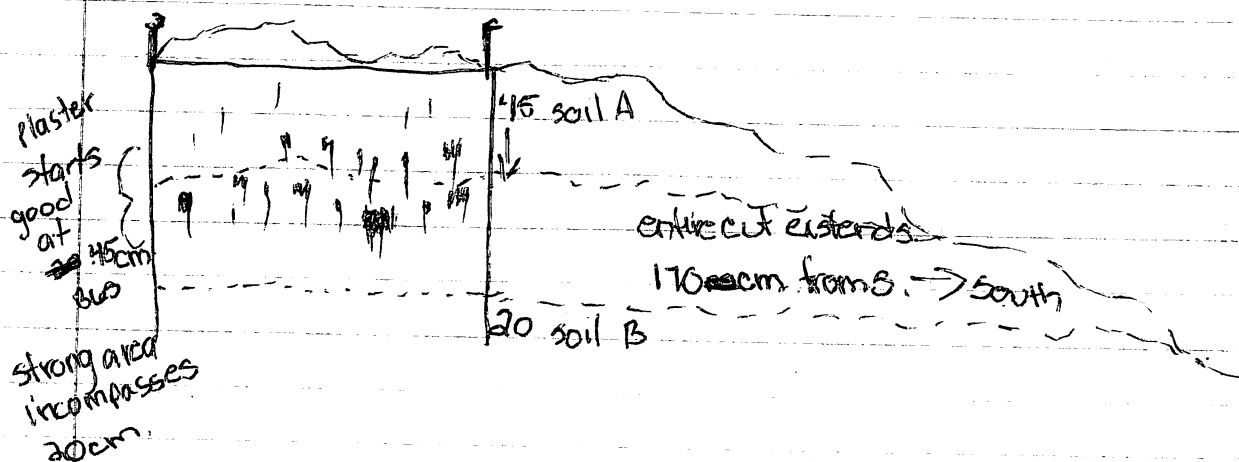 plaster
starts
good
at
45cm
BUS
strong area
incompasses
20cm.
45 soil A
entire cut extends
170 cm from S. → South
20 soil B